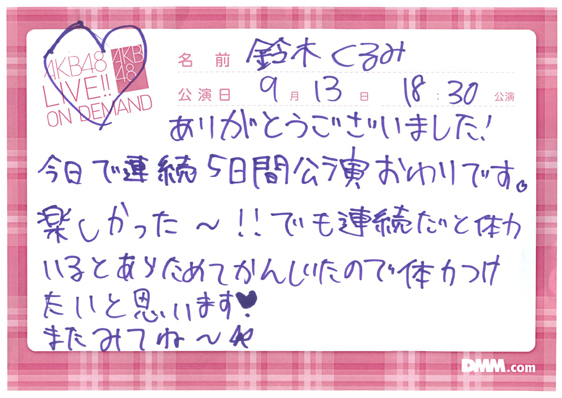 AKB48
LIVE!!
ON DEMAND
AKB
48
名前 鈴木くるみ
公演日 9月13日 18:30公演
ありがとうございました!
今日で連続5日間公演おわりです。
楽しかった〜!!でも連続だと体力
いるとあらためてかんじたので体力つけ
たいと思います♥
またみてね〜☆
DMM.com